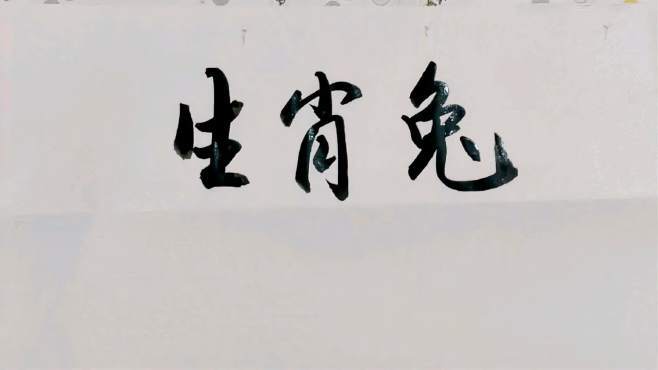 生肖兔